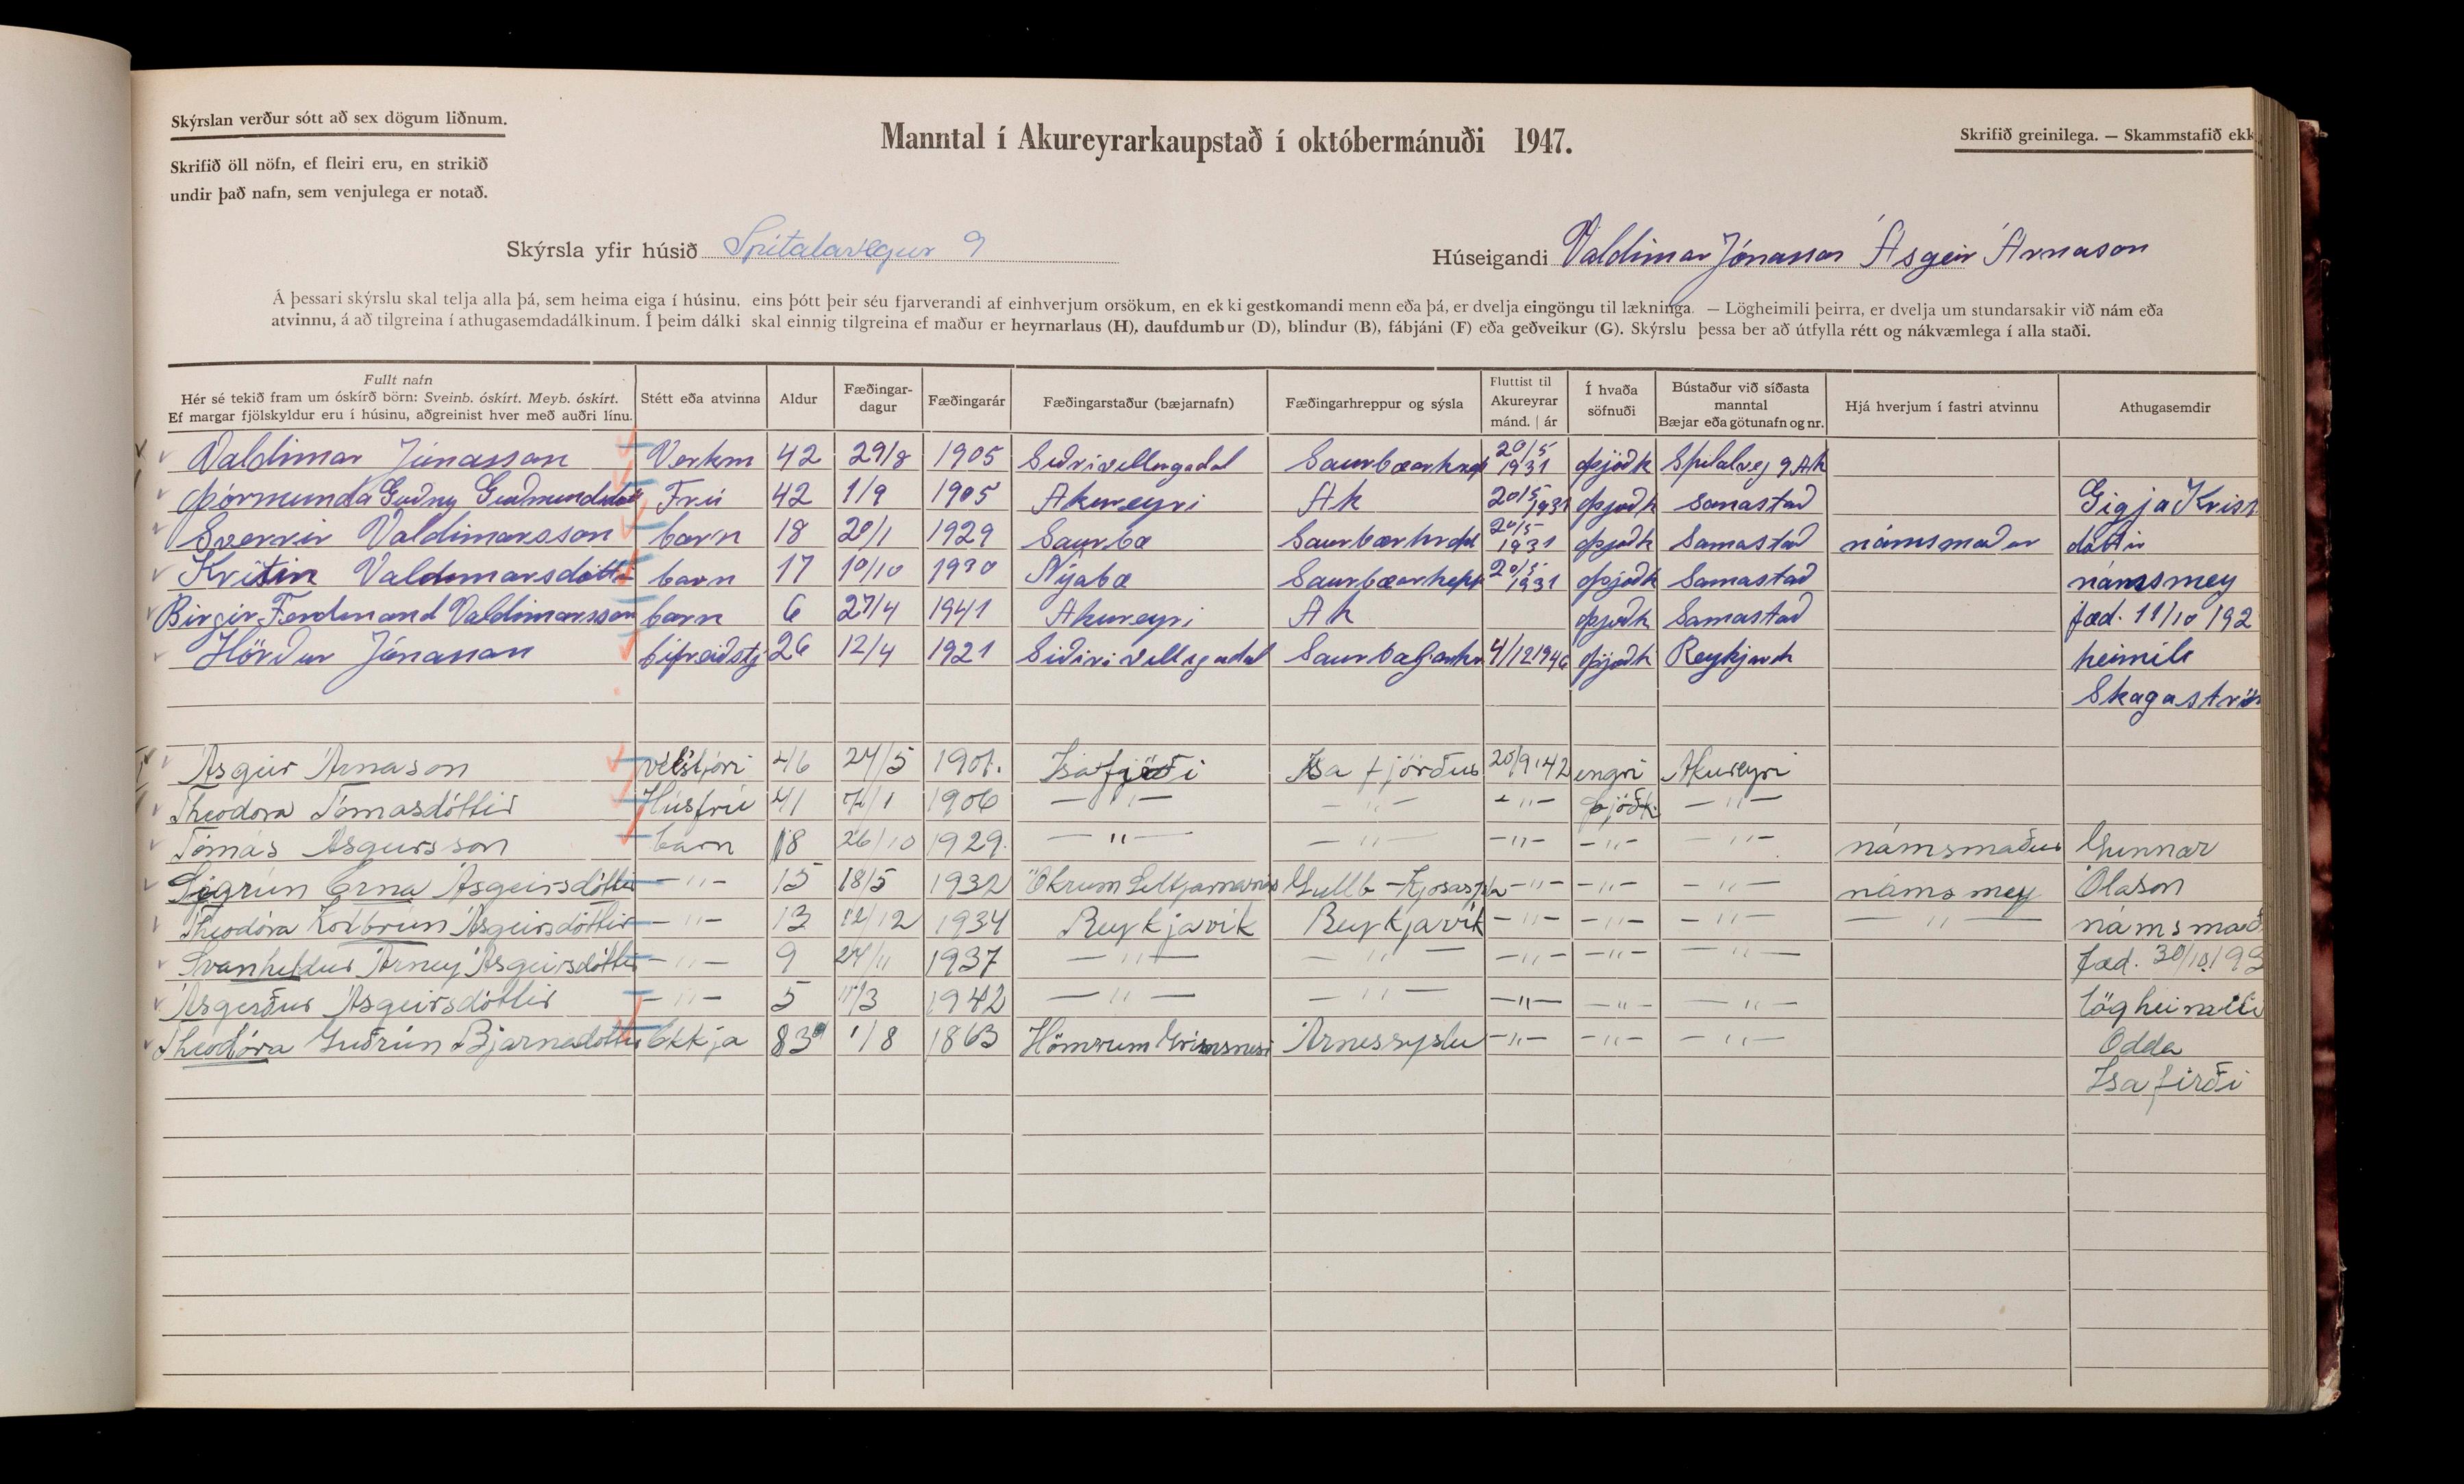 Skýrslan verður sótt að sex dögum liðnum.
Skrifið öll nöfn, ef fleiri eru, en strikið
undir það nafn, sem venjulega er notað.
Manntal í Akureyrarkaupstað í októbermánuði 1947.
Skrifið greinilega. — Skammstafið ekk
Skýrsla yfir húsið Spítalavegur 9
Húseigandi Valdimar Jónasson Ásgeir Árnason
Á þessari skýrslu skal telja alla þá, sem heima eiga í húsinu, eins þótt þeir séu fjarverandi af einhverjum orsökum, en ekki gestkomandi menn eða þá, er dvelja eingöngu til lækninga. — Lögheimili þeirra, er dvelja um stundarsakir við nám eða
atvinnu, á að tilgreina í athugasemdadálkinum. Í þeim dálki skal einnig tilgreina ef maður er heyrnarlaus (H), daufdumbur (D), blindur (B), fábjáni (F) eða geðveikur (G). Skýrslu þessa ber að útfylla rétt og nákvæmlega í alla staði.
Fullt nafn
Hér sé tekið fram um óskírð börn: Sveinb. óskírt. Meyb. óskírt.
Ef margar fjölskyldur eru í húsinu, aðgreinist hver með auðri línu.
Stétt eða atvinna
Aldur
Fæðingar-
dagur
Fæðingarár
Fæðingarstaður (bæjarnafn)
Fæðingarhreppur og sýsla
Fluttist til
Akureyrar
mánd. | ár
Í hvaða
söfnuði
Bústaður við síðasta
manntal
Bæjar eða götunafn og nr.
Hjá hverjum í fastri atvinnu
Athugasemdir
Valdimar Jónasson Verkm 42 29/8 1905 Saurbæarhrep 20/5 1931 þjóðk Spitalveg 9 Ak
Þórmunda Guðny Guðmundsdót Frú 42 1/9 1905 Akureyri Ak 20/5 1931 þjoðk Samastað Gigja Krist
Sverrir Valdimarsson barn 18 20/1 1929 Saurbæ 20/5 1931 þjoðk Samastað námsmaður dóttir
Kristin Valdimarsdótti barn 17 10/10 1930 Nýabæ Saurbæarhrepp 20/5 1931 þjoðk Samastað námsmey
Birgir Ferdinand Valdimarsson barn 6 27/4 1941 Akureyri Ak þjoðk Samastað fæd. 11/10 192
Hörður Jónasson bifreidstj 26 12/4 1921 4/12 1946 þjoðk Reykjavik heimili
Skagaströn
Ásgeir Árnason vélstjóri 46 24/5 1901. Isafjörður 20/9 '42 engri Akureyri
Theodora Tómasdóttir Húsfrú 41 1906 — " — — " — — " — Þjóðk. — " —
Tómás Ásgeirsson barn 18 26/10 1929. — " — — " — — " — — " — — " — námsmaður Gunnar
Sigrún Erna Ásgeirsdóttir — " — 15 18/5 1932 Ökrum Seltjarnarnes Gullb-Kjósarsýsla — " — — " — — " — námsmey Ólason
Theodóra Kolbrún Ásgeirsdóttir — " — 13 12/12 1934 Reykjavík Reykjavík — " — — " — — " — — " — námsmað
Svanhildur Árney Ásgeirsdóttir — " — 9 24/11 1937 — " — — " — — " — — " — — " — fæd. 30/10 193
Ásgerður Ásgeirsdóttir — " — 5 11/3 1942 — " — — " — — " — — " — — " — lögheimili
Theodóra Guðrún Bjarnadóttir Ekkja 83 1/8 1863 Hömrum Grímsnesi Árnessyslu — " — — " — — " — Odda
Isafirði